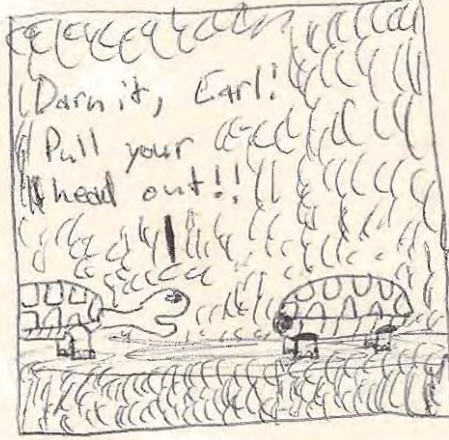 Darn it, Earl!
Pull your
head out!!